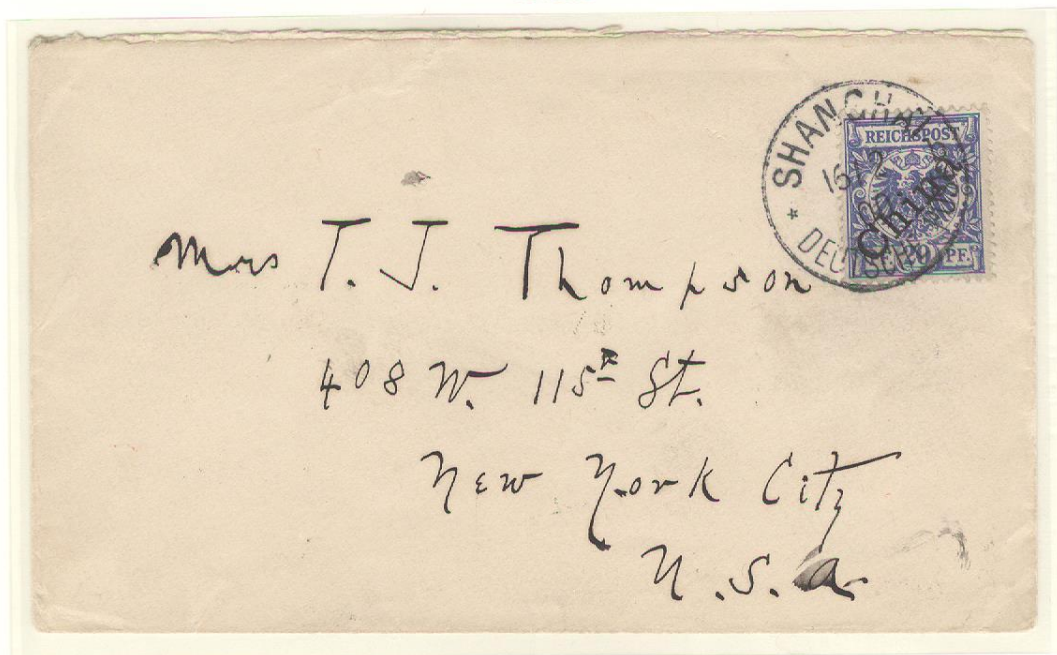 SHANGHAI
16/2
DEUTSCHE
REICHSPOST
China
20 PF.
Mrs T. J. Thompson
408 W. 115th St.
New York City
U.S.A.